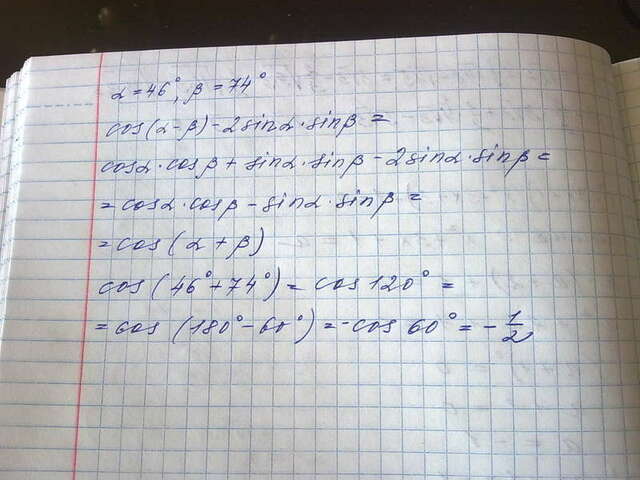 α = 46°, β = 74°
cos(α-β) - 2sinα·sinβ =
cosα·cosβ + sinα·sinβ - 2sinα·sinβ =
= cosα·cosβ - sinα·sinβ =
= cos(α + β)
cos(46° + 74°) = cos 120° =
= cos (180° - 60°) = -cos 60° = - 1/2